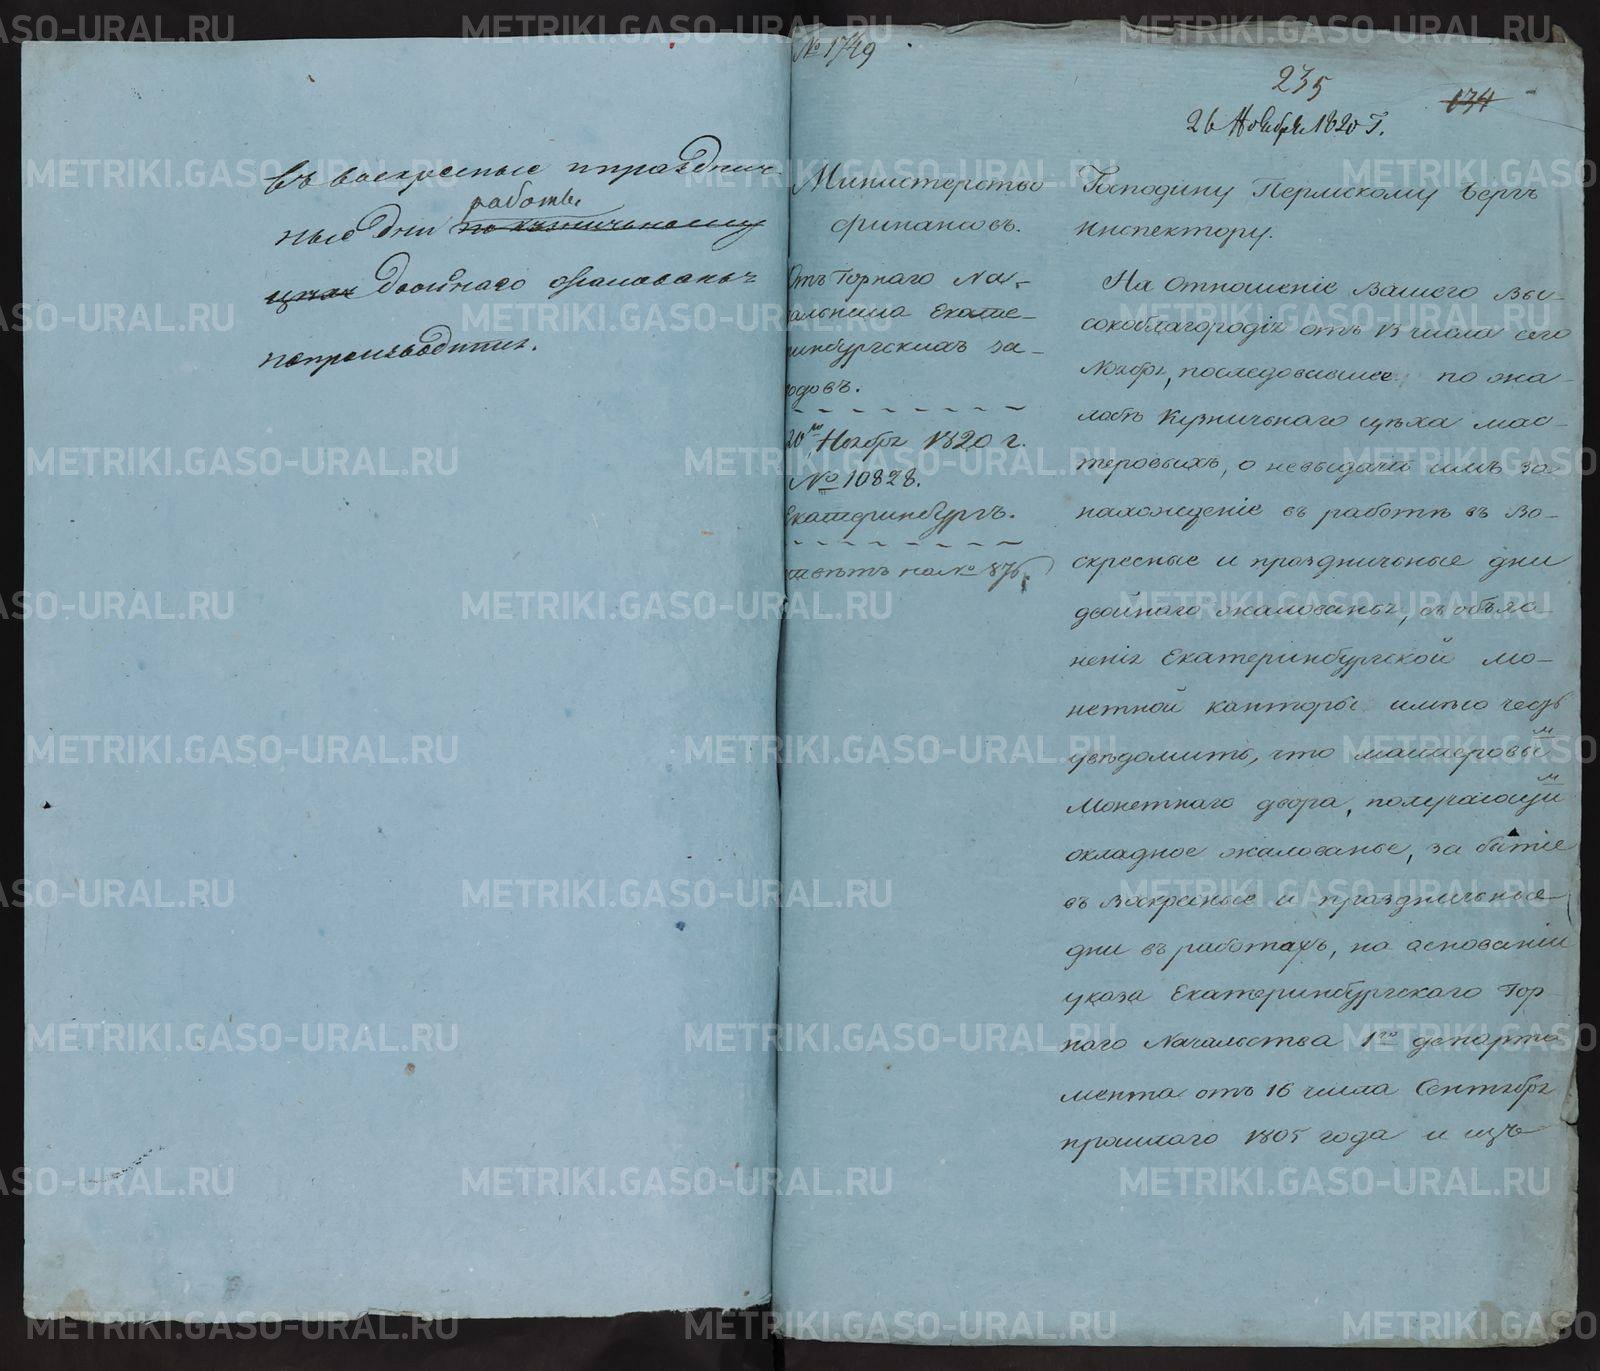 въ воскресные и празднич-
ные дни работы
по кузничьному
цѣхѣ двойнаго жалованья
не производится.
№ 1749
235
134
26 Ноября 1820 г.
Министерство
финансовъ.
Отъ Горнаго На-
чальника Екате-
ринбургскихъ за-
водовъ.
20го Ноября 1820 г.
№ 10828.
Екатеринбургъ.
отвѣтъ на № 876.
Господину Пермскому Бергъ
Инспектору.
На Отношеніе Вашего Вы-
сокоблагородія отъ 13 числа сего
Ноября, последовавшее по жа-
лобѣ Кузничьнаго цѣха мас-
теровыхъ, о невыдачѣ имъ за
нахожденіе въ работѣ въ Во-
скресные и праздничьные дни
двойнаго жалованья, съ объяс-
ненія Екатеринбургской Мо-
нетной канторы имѣю честь
увѣдомить, что мастеровым
Монетнаго двора, получающим
окладное жалованье, за бытіе
въ Воскресные и праздничьные
дни въ работахъ, на основаніи
указа Екатеринбургскаго Гор
наго Начальства 1го департа
мента отъ 16 числа Сентября
прошлаго 1805 года и изъ
METRIKI.GASO-URAL.RU